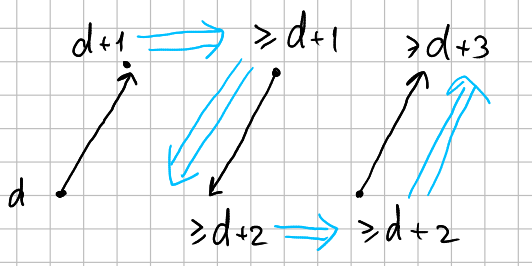 d+1 ⩾ d+1 ⩾d+3
d ⩾d+2 ⩾d+2